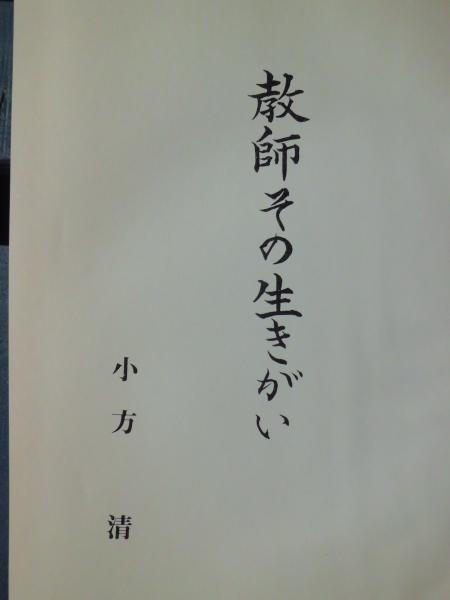 教師その生きがい
小方 清